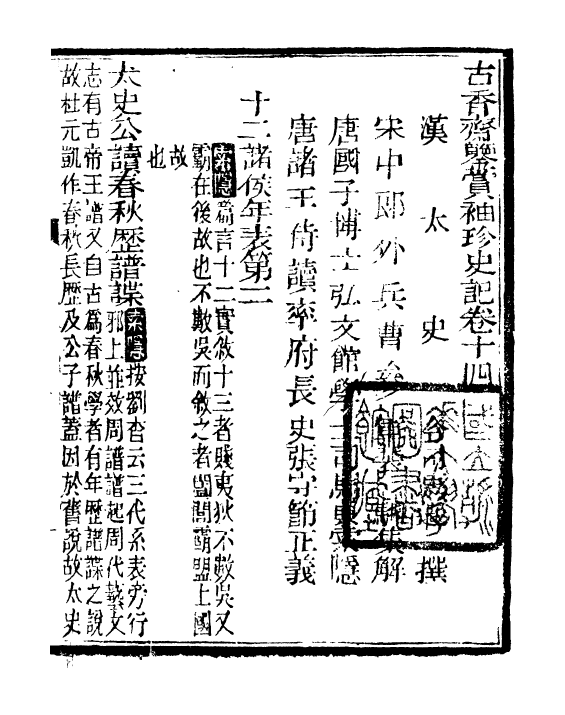 古香齋鑒賞袖珍史記卷十四
漢太史令司馬遷撰
宋中郎外兵曹參軍裴駰集解
唐國子博士弘文館學士司馬貞索隱
唐諸王侍讀率府長史張守節正義
十二諸侯年表第二
索隱篇言十二實敘十三者賤夷狄不數吳又
霸在後故也不數吳而敘之者闔閭霸盟上國
故
也
太史公讀春秋歷譜諜
索隱按劉杳云三代系表旁行
邪上並效周譜譜起周代藝文
志有古帝王譜又自古爲春秋學者有年歷譜諜之說
故杜元凱作春秋長歷及公子譜蓋因於舊說故太史